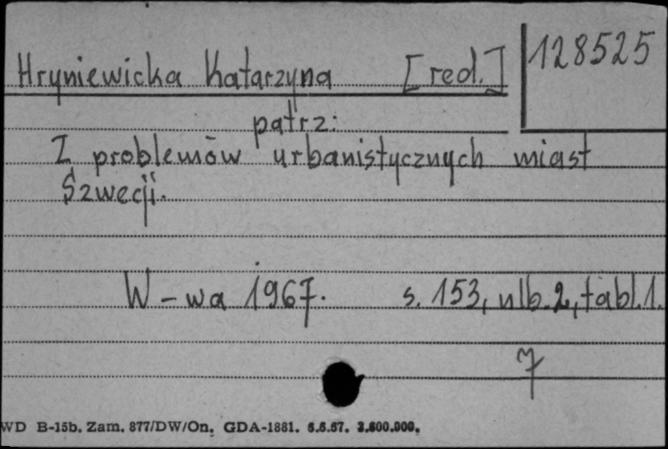 128525
Hryniewicka Katarzyna [red.]
patrz:
Z problemów urbanistycznych miast
Szwecji.
W-wa 1967. s. 153, nlb. 2, tabl. 1.
7
WD B-15b. Zam. 877/DW/On. GDA-1881. 6.6.67. 3.800.000.